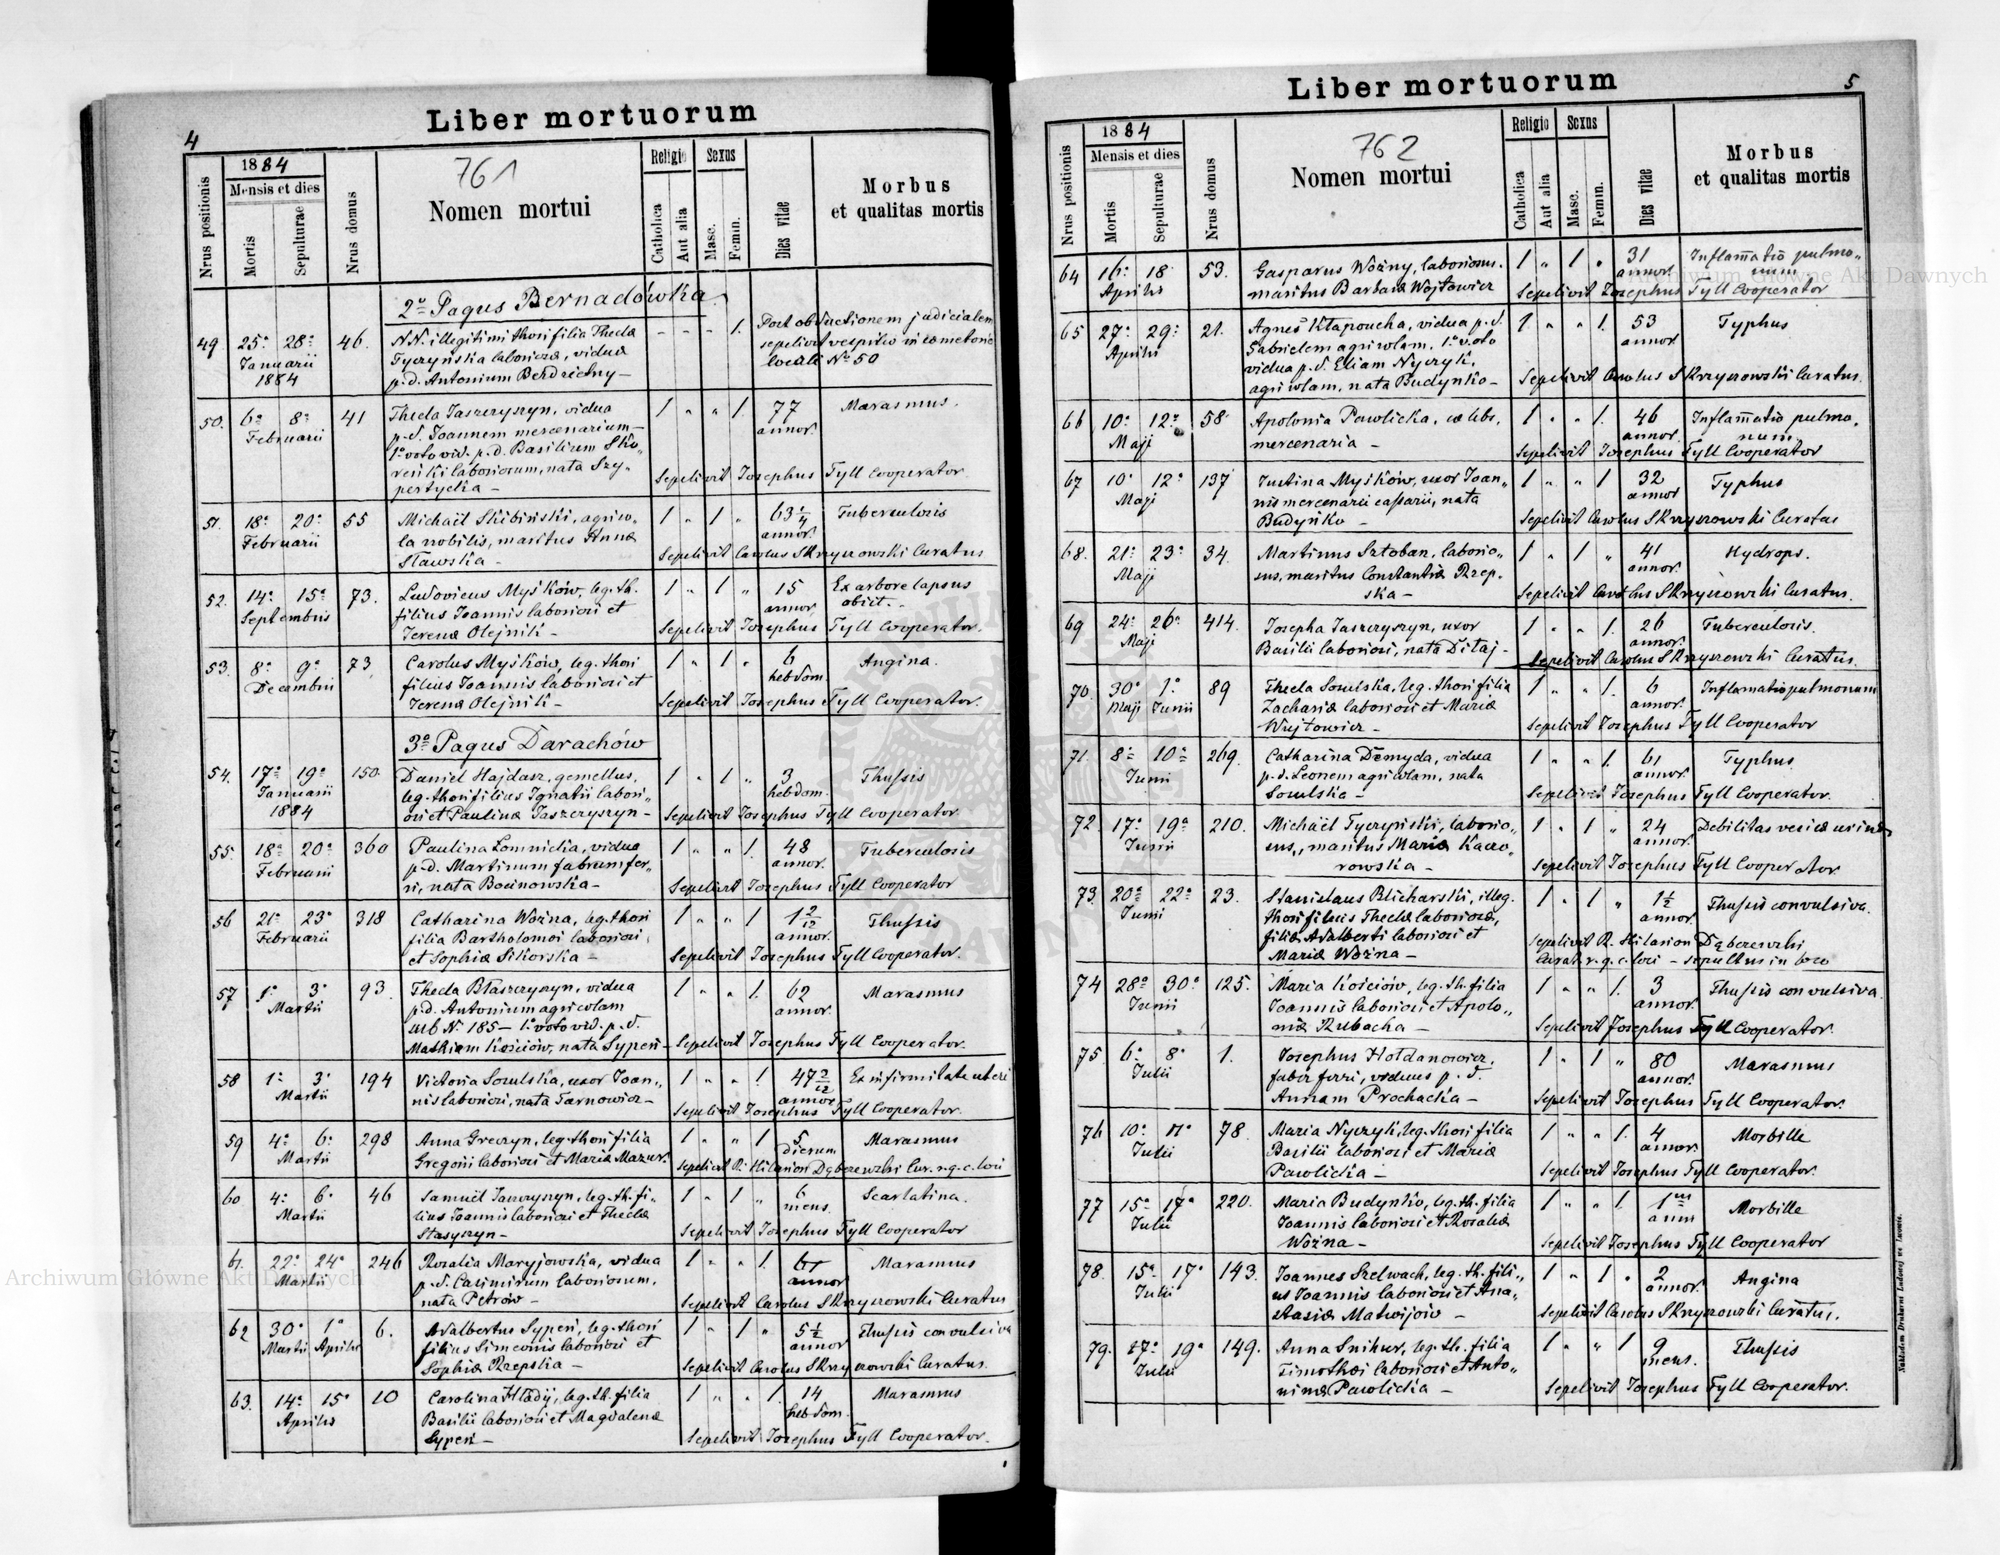 4
Liber mortuorum
Nrus positionis
1884
Mensis et dies
Mortis
Sepulturae
Nrus domus
761
Nomen mortui
Religio
Catholica
Aut alia
Sexus
Masc.
Femin.
Dies vitae
Morbus
et qualitas mortis
2º Pagus Bernadówka
49 25ª 28ª 46. N.N. illegitimi thori filia Theclæ - - - 1. Post obductionem judicialem
Januarii Tyczyńska laboriosæ, viduæ sepelivit vespilio in cœmeterio
1884 p.d. Antonium Berdzichny - locali Nº 50
50. 6ª 8ª 41 Thecla Jaszczyszyn, vidua 1 " " 1. 77 Marasmus.
Februarii p.d. Joannem mercenarium - annor.
1º voto vid. p.d. Basilium Sko„
reński laboriosum, nata Szy„ Sepelivit Josephus Tyll Cooperator
pertycka -
51. 18ª 20ª 55 Michaël Skibiński, agrico„ 1 " 1 " 63 1/4 Tuberculosis
Februarii la nobilis, maritus Annæ annor.
Sławska - Sepelivit Carolus Skrzyszowski Curatus
52. 14ª 15ª 73. Ludovicus Myśków, leg. th. 1 " 1 " 15 Ex arbore lapsus
Septembris filius Joannis laboriosi et annor. obiit.
Ierenæ Olejnik - Sepelivit Josephus Tyll Cooperator.
53. 8ª 9ª 73 Carolus Myśków, leg. thori 1 " 1 " 6 Angina.
Decembris filius Joannis laboriosi et hebdom.
Ierenæ Olejnik - Sepelivit Josephus Tyll Cooperator.
3º Pagus Darachów
54. 17ª 19ª 150. Daniel Hajdasz, gemellus, 1 " 1 " 3 Thussis
Januarii leg. thori filius Ignatii labori„ hebdom.
1884 osi et Paulinæ Jaszczyszyn - Sepelivit Josephus Tyll Cooperator
55. 18ª 20ª 360 Paulina Łomnicka, vidua 1 " " 1. 48 Tuberculosis
Februarii p.d. Martinum fabrum fer„ annor.
ri, nata Bocinowska - Sepelivit Josephus Tyll Cooperator
56 21ª 23ª 318 Catharina Woźna, leg. thori 1 " " 1 1 2/12 Thussis
Februarii filia Bartholomæi laboriosi, annor.
et Sophiæ Sikorska - Sepelivit Josephus Tyll Cooperator.
57 1ª 3ª 93. Thecla Błaszczyszyn, vidua 1 " " 1. 62 Marasmus
Martii p.d. Antonium agricolam annor.
sub Nº 185 - 1º voto vid. p.d.
Mathiam Kościów, nata Sypeń - Sepelivit Josephus Tyll Cooperator.
58 1ª 3ª 194 Victoria Soculska, uxor Joan„ 1 " " 1. 47 2/12 Ex infirmitate uteri
Martii nis laboriosi, nata Tarnowicz - annor. Sepelivit Josephus Tyll Cooperator.
59 4ª 6ª 298 Anna Greczyn, leg. thori filia 1 " " 1 5 Marasmus
Martii Gregorii laboriosi et Mariæ Mazur. dierum Sepelivit R. Hilarion Dąbczewski Cur. r.g.c. loci
60 4ª 6ª 46 Samuël Jaszczyszyn, leg. th. fi„ 1 " 1 " 6 Scarlatina.
Martii lius Joannis laboriosi et Theclæ mens.
Stasyszyn - Sepelivit Josephus Tyll Cooperator
61. 22ª 24ª 246 Rozalia Maryjowska, vidua 1 " " 1. 61 Marasmus
Martii p.d. Casimirum laboriosum, annor.
nata Petrów - Sepelivit Carolus Skrzyszowski Curatus
62 30ª 1ª 6. Adalbertus Sypeń, leg. thori 1 " 1 " 5 1/2 Thussis convulsiva
Martii Aprilis filius Simeonis laboriosi et annor
Sophiæ Rzepska - Sepelivit Carolus Skrzyszowski Curatus.
63. 14ª 15ª 10 Carolina Hladij, leg. th. filia 1 " " 1. 14 Marasmus
Aprilis Basilii laboriosi et Magdalenæ hebdom.
Sypeń - Sepelivit Josephus Tyll Cooperator.
5
Liber mortuorum
Nrus positionis
1884
Mensis et dies
Mortis
Sepulturae
Nrus domus
762
Nomen mortui
Religio
Catholica
Aut alia
Sexus
Masc.
Femin.
Dies vitae
Morbus
et qualitas mortis
64 16ª 18 53. Gasparus Woźny, laboriosus. 1 " 1 " 31 Inflam̄atio pulmo„
Aprilis maritus Barbaræ Wojtowicz annor. num
Sepelivit Josephus Tyll Cooperator
65 27ª 29ª 21. Agnes Kłapoucha, vidua p.d. 1. " " 1. 53 Typhus
Aprilis Gabrielem agricolam, 1º voto annor.
vidua p.d. Eliam Nyczyk,
agricolam, nata Budynko - Sepelivit Carolus Skrzyszowski Curatus.
66 10ª 12ª 58 Apolonia Pawlicka, cælebs, 1 " " 1. 46 Inflam̄atio pulmo„
Maji mercenaria - annor. num
Sepelivit Josephus Tyll Cooperator
67 10ª 12ª 137 Justina Myśków, uxor Joan„ 1 " " 1 32 Typhus
Maji nis mercenarii cassarii, nata annor
Budyńko - Sepelivit Carolus Skrzyszowski Curatus
68. 21ª 23ª 34. Martinus Sztoban, laborio„ 1 " 1 " 41 Hydrops.
Maji sus, maritus Constantiæ Rzep„ annor.
ska - Sepelivit Carolus Skrzyszowski Curatus.
69 24ª 26ª 414. Josepha Jaszczyszyn, uxor 1 " " 1. 26 Tuberculosis.
Maji Basilii laboriosi, nata Ditaj - annor.
Sepelivit Carolus Skrzyszowski Curatus.
70. 30ª 1ª 89 Thecla Soculska, leg. thori filia 1 " " 1. 6 Inflamatio pulmonum
Maji Junii Zachariæ laboriosi et Mariæ annor.
Wujtowicz - Sepelivit Josephus Tyll Cooperator
71. 8ª 10ª 269. Catharina Demyda, vidua 1 " " 1. 61 Typhus
Junii p.d. Leonem agricolam, nata annor.
Soculska - Sepelivit Josephus Tyll Cooperator.
72. 17ª 19ª 210. Michaël Tyczyński, laborio„ 1 " 1 " 24 Debilitas vesicæ urinæ
Junii sus, maritus Mariæ Kaczo„ annor.
rowska - Sepelivit Josephus Tyll Cooperator.
73. 20ª 22ª 23. Stanislaus Blicharski, illeg. 1 " 1 " 1 1/2 Thussis convulsiva.
Junii thori filius Theclæ laboriosæ, annor.
filiæ Adalberti laboriosi et Sepelivit R. Hilarion Dąbczewski
Mariæ Woźna - Curat. r.g.c. loci - sepultus in loco
74 28ª 30ª 125. Maria Kościów, leg. th. filia 1 " " 1. 3 Thussis convulsiva.
Junii Joannis laboriosi et Apolo„ annor.
niæ Rubacha - Sepelivit Josephus Tyll Cooperator.
75. 6ª 8ª 1. Josephus Hołdanowicz, 1 " 1 " 80 Marasmus
Julii faber ferri, viduus p.d. annor.
Annam Prochacka - Sepelivit Josephus Tyll Cooperator.
76 10ª 11ª 78. Maria Nyczyk, leg. thori filia 1 " " 1. 4 Morbille
Julii Basilii laboriosi et Mariæ annor.
Pawlicka - Sepelivit Josephus Tyll Cooperator.
77 15ª 17ª 220. Maria Budynko, leg. th. filia 1 " " 1. 1 Morbille
Julii Joannis laboriosi et Rozaliæ anni
Woźna - Sepelivit Josephus Tyll Cooperator
78. 15ª 17ª 143. Joannes Szelwach, leg. th. fili„ 1 " 1 " 2 Angina
Julii us Joannis laboriosi et Ana„ annor.
stasiæ Matwijów - Sepelivit Carolus Skrzyszowski Curatus,
79. 17ª 19ª 149. Anna Snihur, leg. th. filia 1 " " 1 9 Thussis
Julii Timothæi laboriosi et Anto„ mens.
ninæ Pawlicka - Sepelivit Josephus Tyll Cooperator.
Nakładem Drukarni Ludowej we Lwowie.
Archiwum Główne Akt Dawnych
Archiwum Główne Akt Dawnych